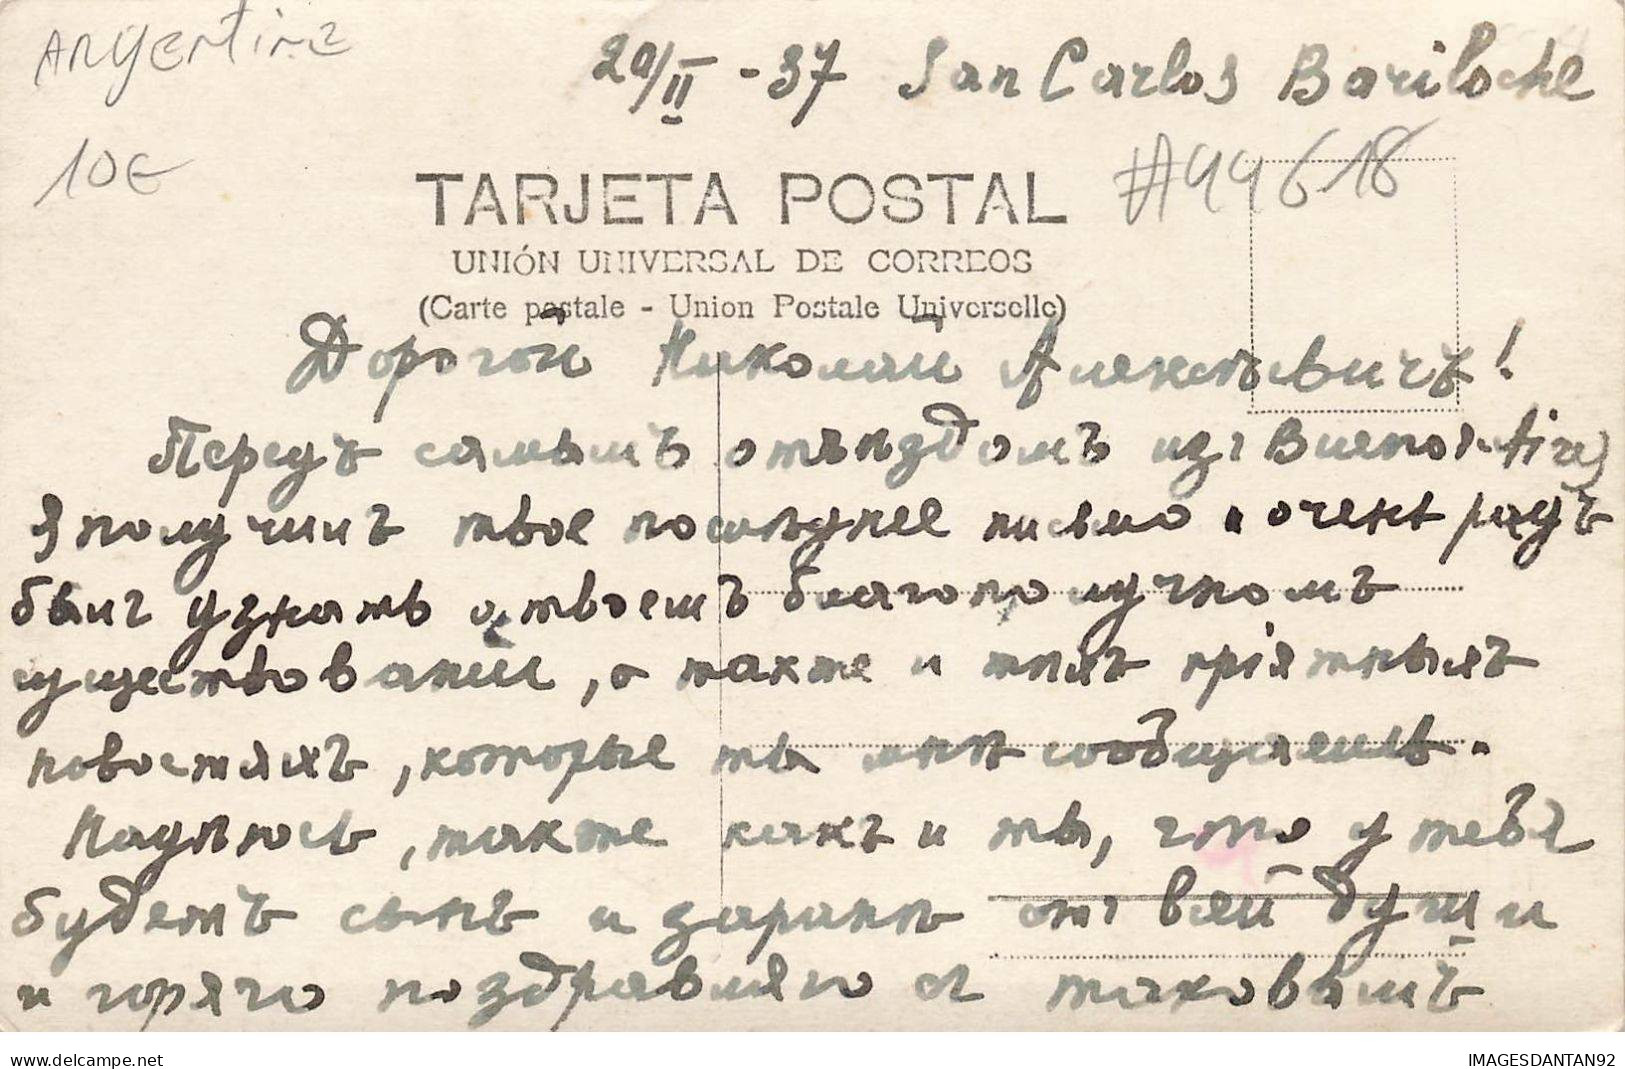 Argentine
20/II - 37 San Carlos Bariloche
10€
#99618
TARJETA POSTAL
UNIÓN UNIVERSAL DE CORREOS
(Carte postale - Union Postale Universelle)
Дорогой Николай Алексѣевичъ!
Передъ самымъ отъѣздомъ изъ Buenos-Aires
я получилъ твое послѣднее письмо и очень радъ
былъ узнать о твоемъ благополучномъ
существованіи, а также и тѣхъ пріятныхъ
новостяхъ, которые ты мнѣ сообщаешь.
Надѣюсь, также какъ и ты, что у тебя
будетъ сынъ и заранѣ отъ всей души
и горячо поздравляю съ таковымъ
delcampe.net
IMAGESDANTAN92